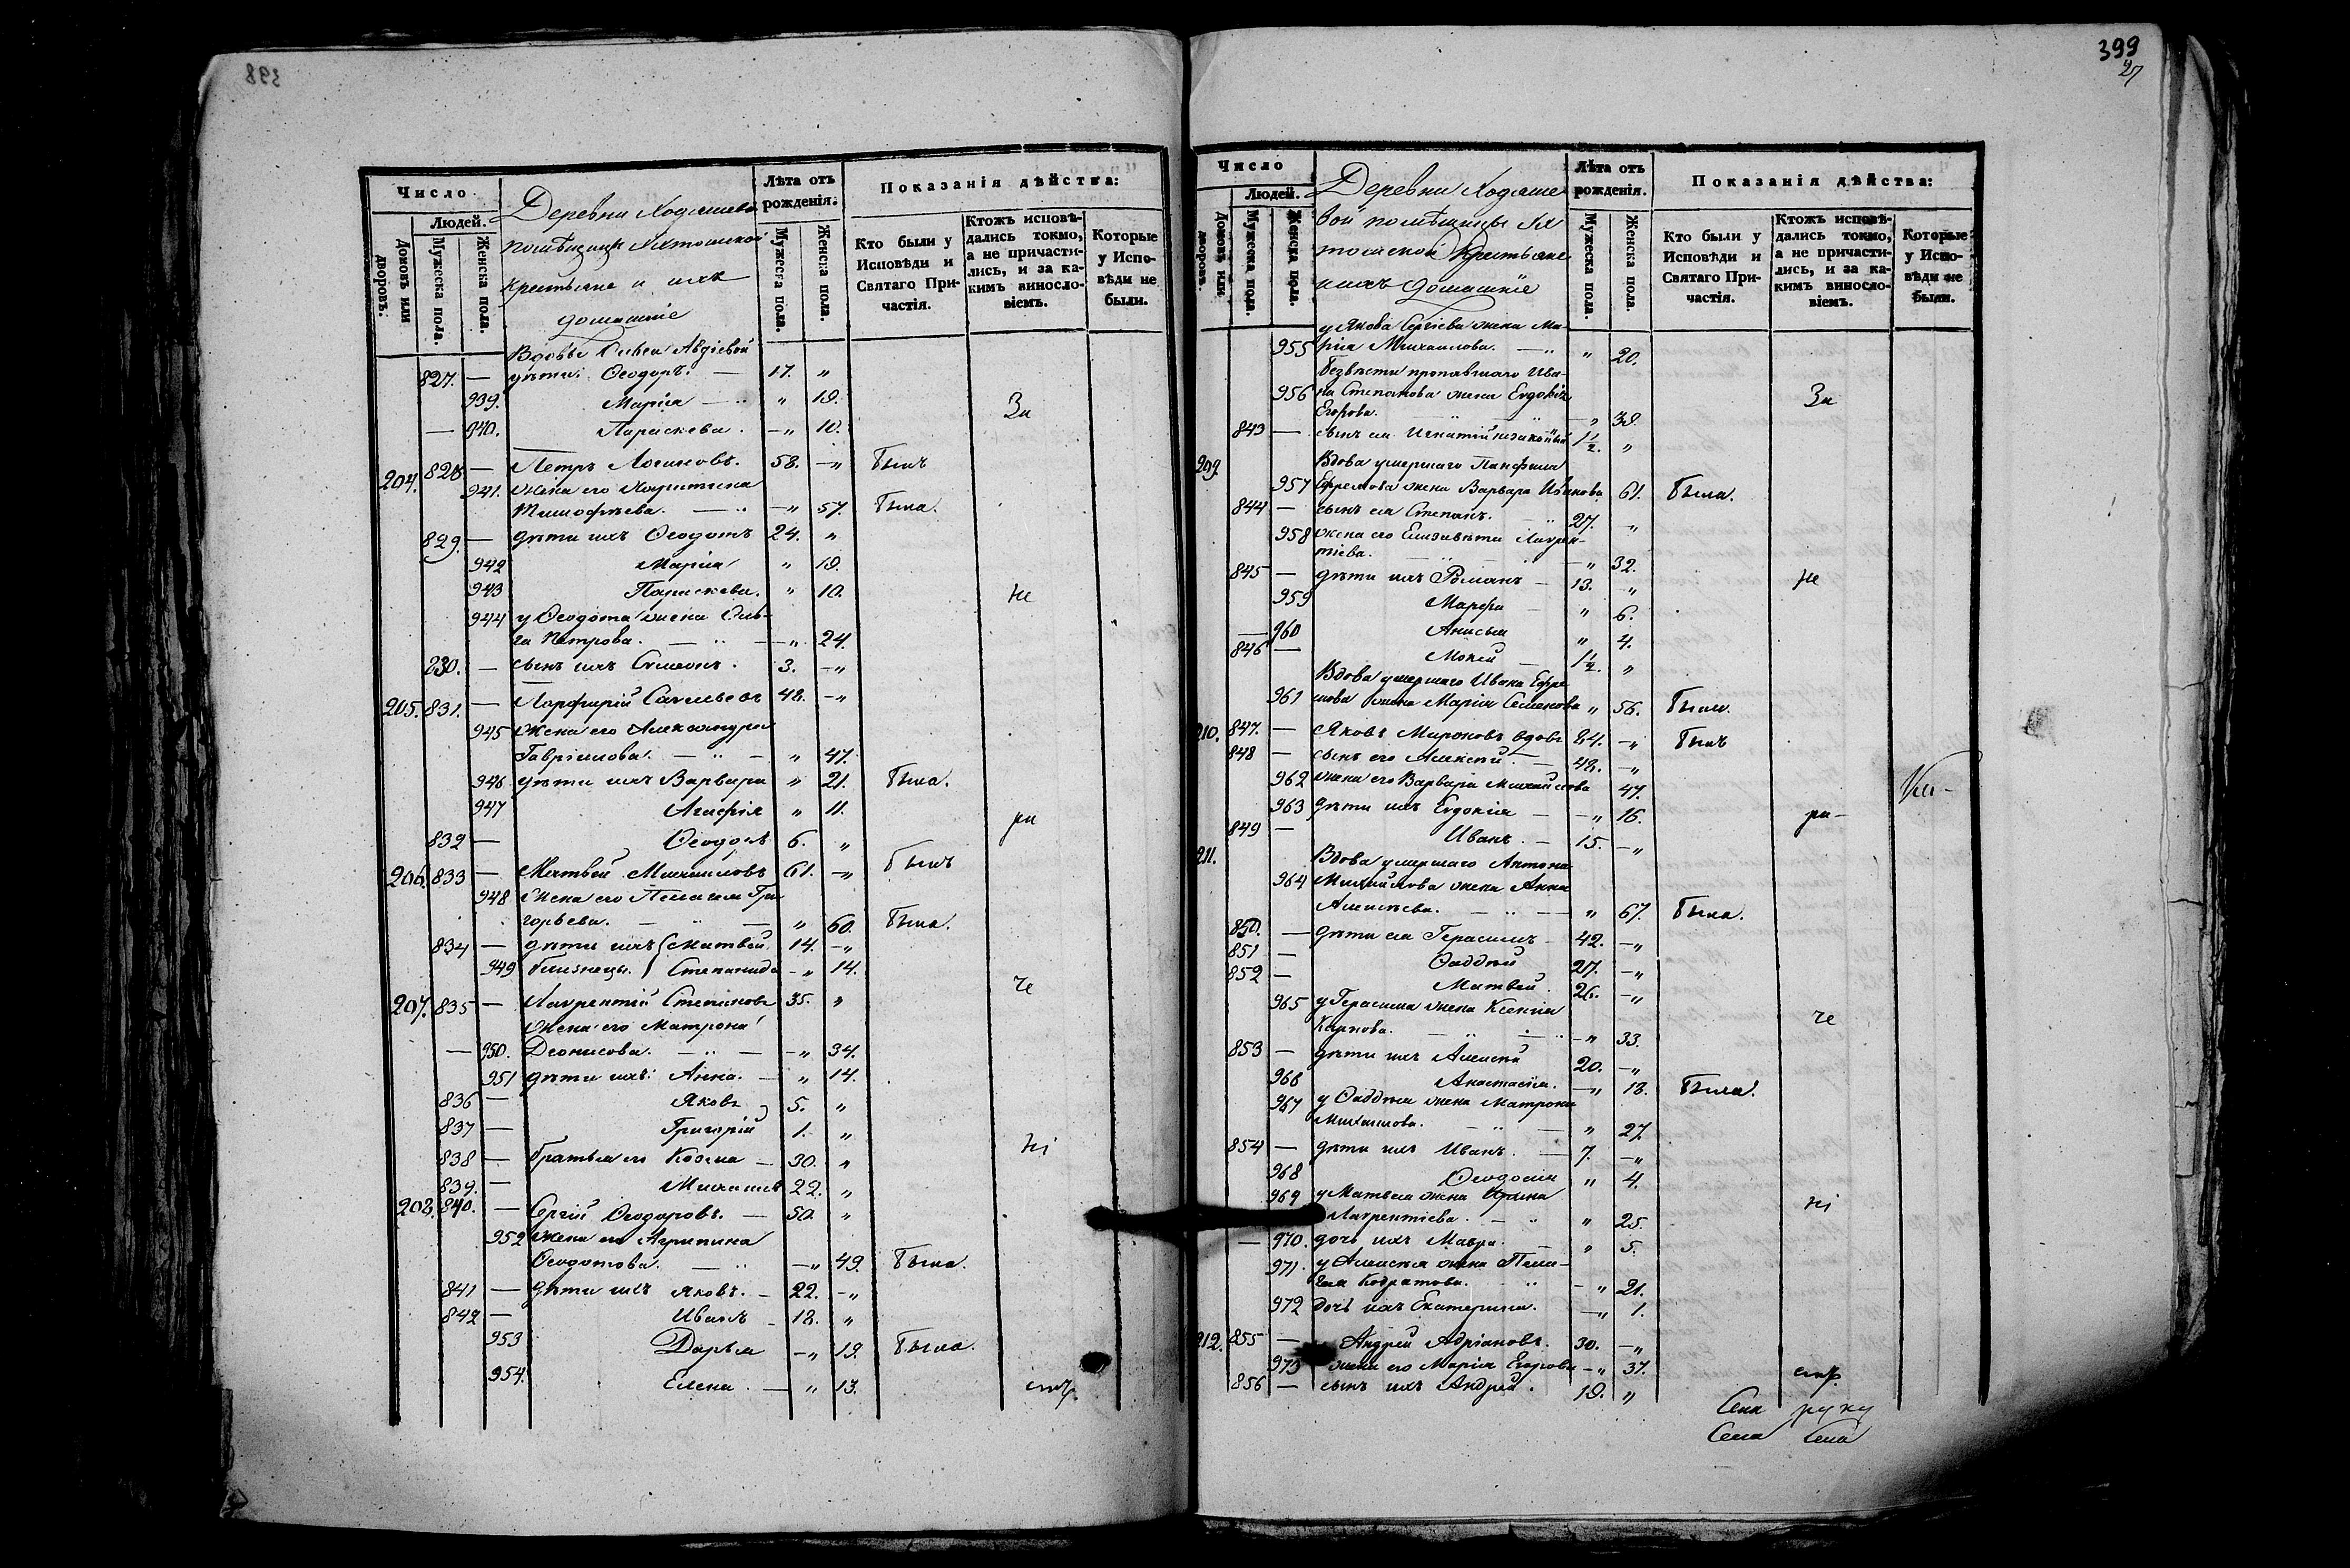 398
Число
Людей.
Домовъ или дворовъ.
Мужеска пола.
Женска пола.
Деревни Ходяшева
помѣщицы
крестьяне и ихъ
домашніе
Лѣта отъ рожденія.
Мужеска пола.
Женска пола.
Показанія дѣйства:
Кто были у Исповѣди и Святаго Причастія.
Ктожъ исповѣдались токмо, а не причастились, и за какимъ винословіемъ.
Которые у Исповѣди не были.
Вдовы Авдіевой
827. — дѣти: Ѳеодоръ. — 17. „
939. Марія — „ 19. За
— 940. Параскева. — „ 10.
204. 828 — Петръ Логиновъ. 58. — „ Былъ
941. жена его
Тимофѣева. — „ 57. Была.
829. — дѣти ихъ Ѳеодотъ 24. „
942 Марія „ 19.
943 Параскева. „ 10. не
944 у Ѳеодота жена Оль-
га Петрова. — „ 24.
830. — сынъ ихъ Симеонъ. 3. — „
205. 831. — Порфирій Савельевъ 48. — „
945 жена его Александра
Гавріилова. — „ 47.
946 дѣти ихъ Варвара „ 21. Была.
947 Агафія „ 11. ра
832 — Ѳеодоръ 6. „
206. 833 — Матвей Михайловъ 61. — „ Былъ
948 жена его Пелагея Гри-
горьева. — „ 60. Была.
834 — дѣти ихъ Матвей 14. — „
949 близнецы. Степанида — „ 14. че
207. 835 — Лаврентій Степановъ 35. „
жена его Матрона
— 950. Деонисова. — „ 34.
951 дѣти ихъ: Анна. — „ 14.
836 — Яковъ 5. „
837 — Григорій 1. „ ні
838 — братья его Козма — 30. „
839. — Михаилъ 22. „
208. 840. — Сергій Ѳеодоровъ. — 50. „
952 жена его Агрипина
Ѳеодотова. — „ 49. Была.
841 — дѣти ихъ Яковъ. — 22. — „
842 — Иванъ — 18. „
953 Дарья — „ 19. Была.
954. Елена. — „ 13. емъ.
399
27
Число
Людей.
Домовъ или дворовъ.
Мужеска пола.
Женска пола.
Деревни Ходяше
вой помѣщицы
крестьяне
и ихъ домашніе
Лѣта отъ рожденія.
Мужеска пола.
Женска пола.
Показанія дѣйства:
Кто были у Исповѣди и Святаго Причастія.
Ктожъ исповѣдались токмо, а не причастились, и за какимъ винословіемъ.
Которые у Исповѣди не были.
у Якова Сергіева жена Ма-
955 рія Михаилова. — „ 20.
Безвѣсти пропавшаго Ива-
956 на Степанова жена Евдокія За
Егорова. — „ 38.
843 — сынъ ея Игнатій 1½. „
209. Вдова умершаго Панфила
957 Ефремова жена Варвара Иванова 61. Была.
844 — сынъ ея Степанъ. 27. „
958 жена его Елизавета Лаврен-
тіева. — „ 32.
845 — дѣти ихъ Романъ — 13. „ не
959 Марфа — „ 6.
— 960 Анисья „ 4.
846 — Мокей — 1½. „
Вдова умершаго Ивана Ефре-
961 мова жена Марія Семенова „ 56. Была.
210. 847. — Яковъ Мироновъ вдовъ 84. — „ Былъ
848 — сынъ его Алексѣй. — 48. — „
962 жена его Варвара Михайлова 47.
963 дѣти ихъ Евдокія — — „ 16. ра-
849 — Иванъ — 15. — „
211. Вдова умершаго Антона
964 Михайлова жена Анна
Алексѣева. — „ 67. Была.
850. — дѣти ея Герасимъ 42. — „
851 — Ѳаддѣй 27. — „
852 — Матвей. 26. — „
965 у Герасима жена Ксенія че
Карпова. — „ 33.
853 — дѣти ихъ Алексѣй 20. — „
966 Анастасія. — „ 18. Была.
967 у Ѳаддѣя жена Матрона
Михаилова. — „ 27.
854 — дѣти ихъ Иванъ. — 7. — „
968 Ѳеодосія „ 4.
969 у Матвея жена Ирина ні
Лаврентіева. — „ 25.
— 970. дочь ихъ Мавра. — „ 5.
971. у Алексѣя жена Пела-
гея Кодратова. — „ 21.
972 дочь ихъ Екатерина. — „ 1.
212. 855 — Андрей Адріановъ. 30. — „
973 жена его Марія Егорова — „ 37. емъ.
856 — сынъ ихъ Андрей. 10. „
руку